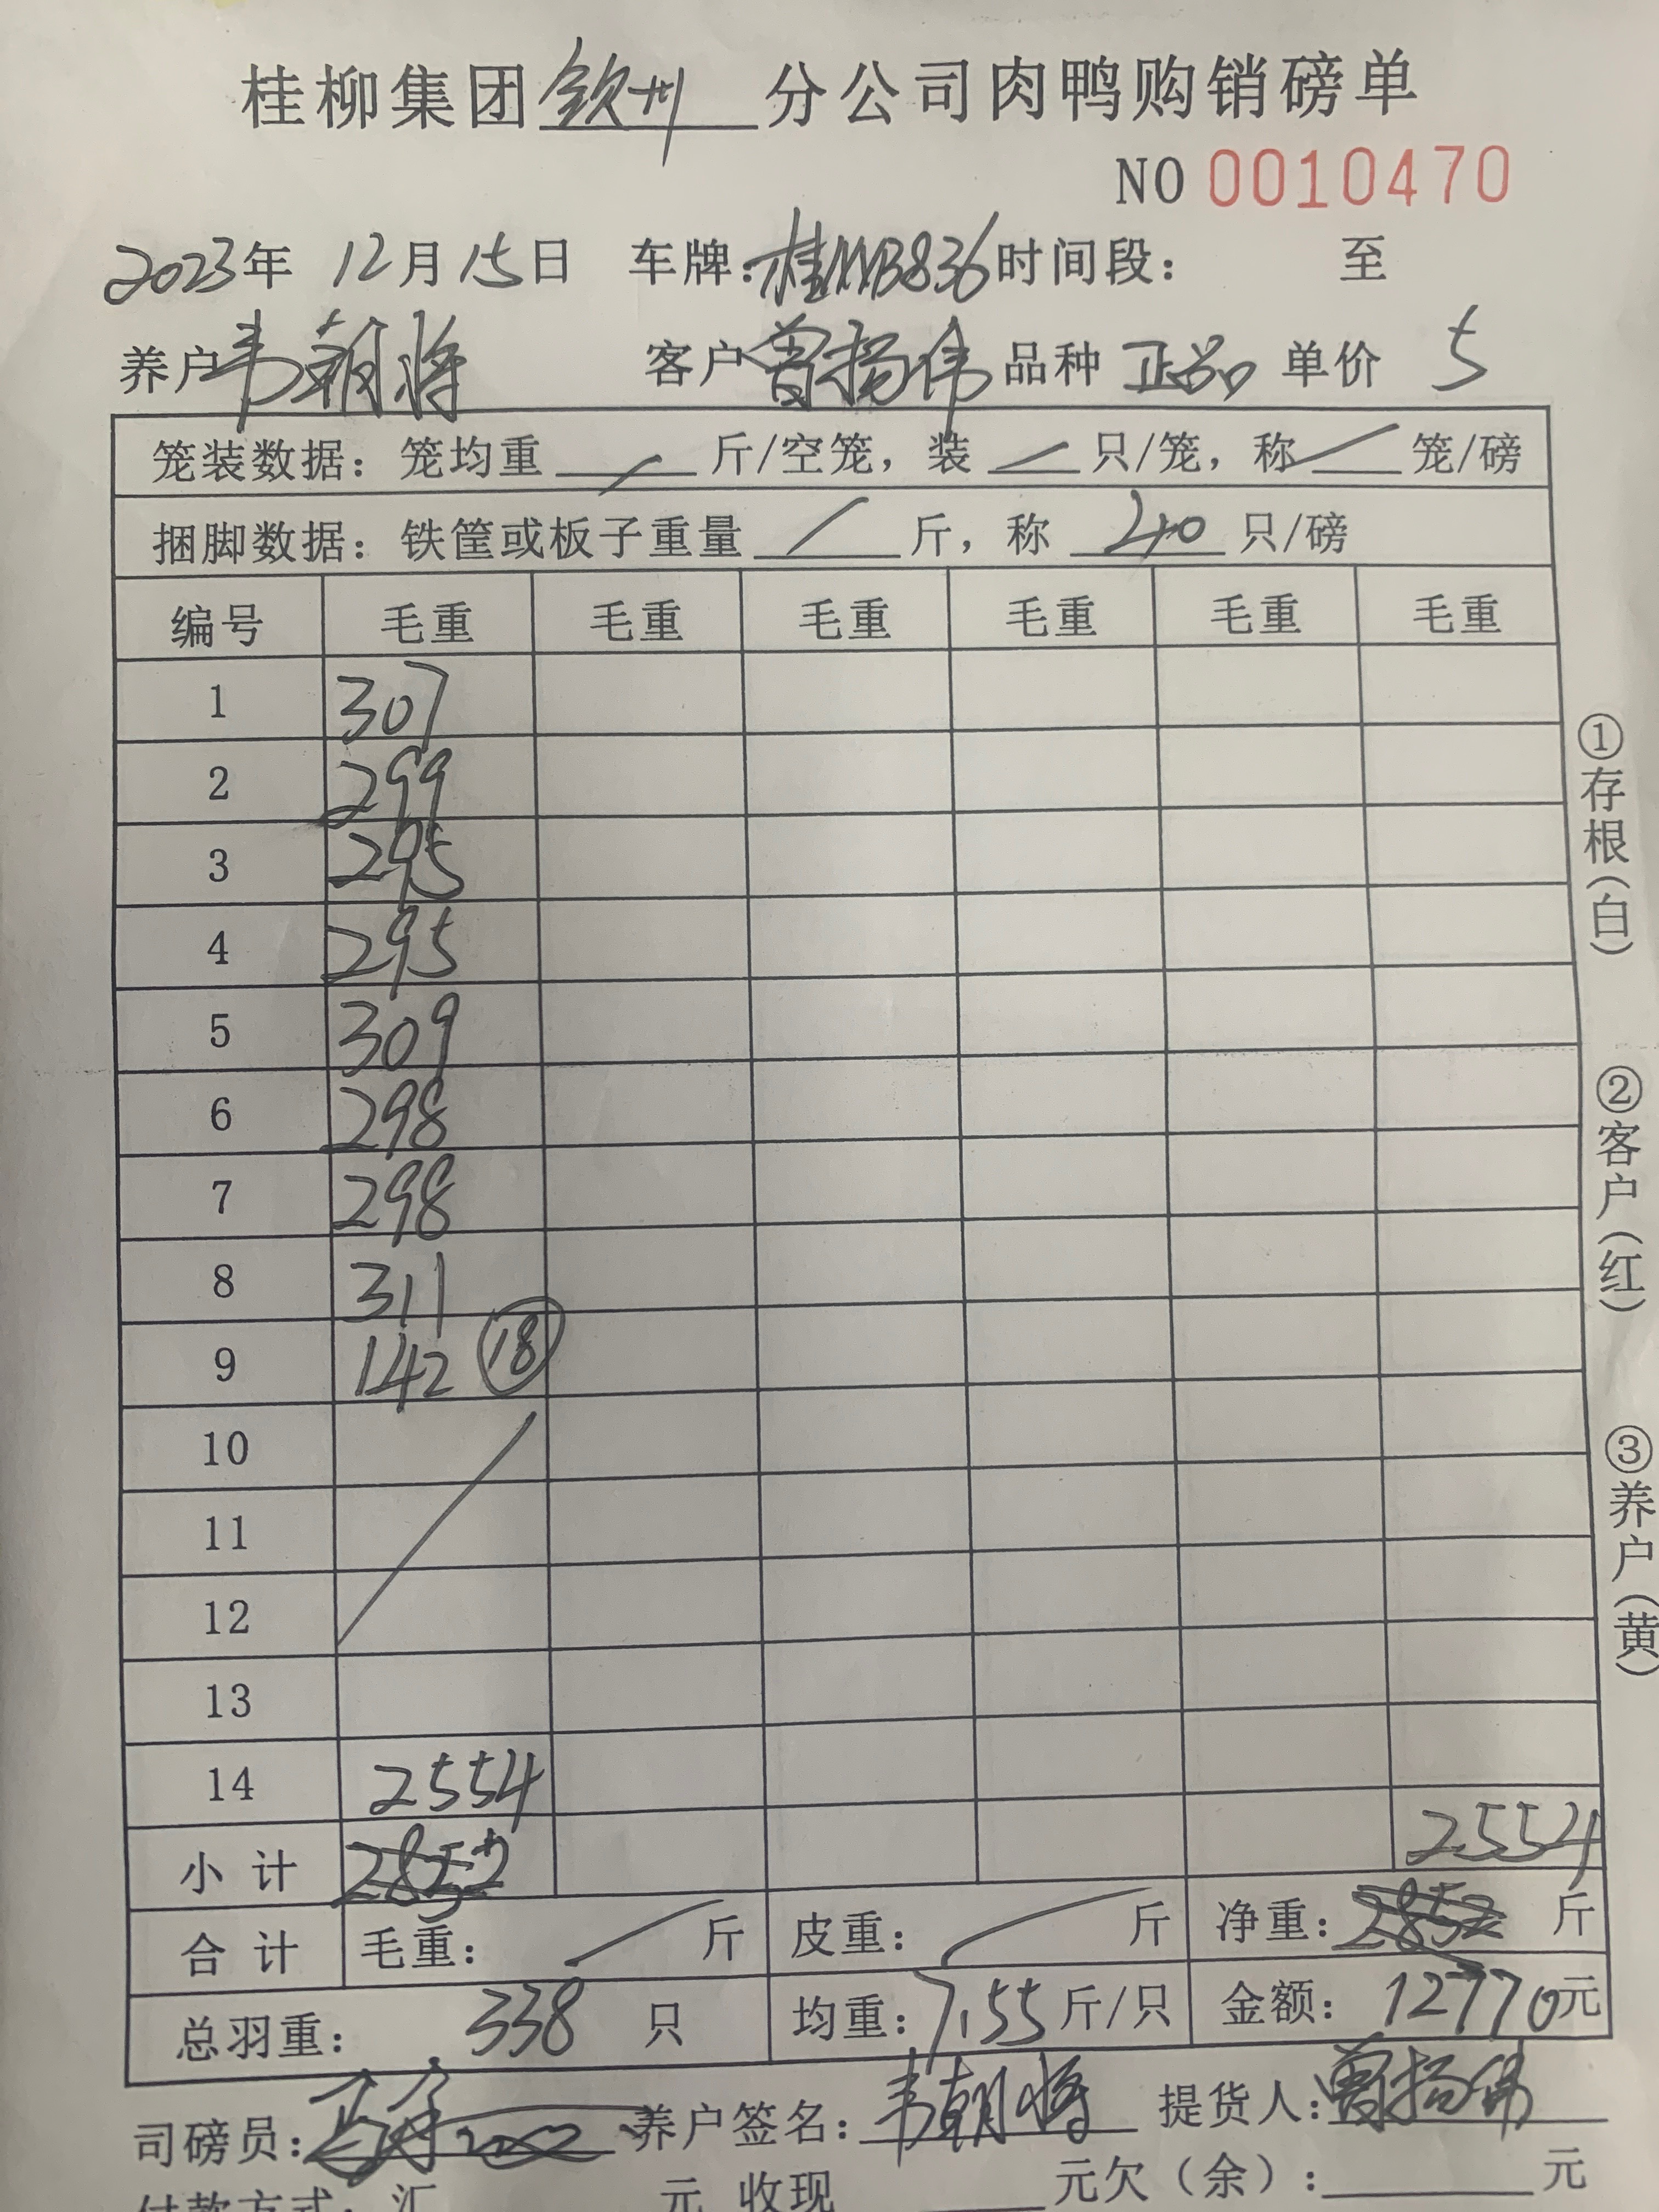 桂柳集团钦州分公司肉鸭购销磅单
NO 0010470
2023年 12月15日 车牌:桂MB836 时间段: 至
养户韦朝将 客户曾扬伟 品种 正品 单价 5
笼装数据: 笼均重 / 斤/空笼, 装 / 只/笼, 称 / 笼/磅
捆脚数据: 铁筐或板子重量 / 斤, 称 40 只/磅
编号 毛重 毛重 毛重 毛重 毛重 毛重
1 307
2 299
3 295
4 295
5 309
6 298
7 298
8 311
9 142 ⑱
10
11
12
13
14 2554
小计 2852 2554
合计 毛重: / 斤 皮重: / 斤 净重: 2852 斤
总羽重: 338 只 均重: 7.55斤/只 金额: 12770元
司磅员: 养户签名: 韦朝将 提货人: 曾扬伟
付款方式: 汇 元 收现 元欠(余): 元
①存根(白)
②客户(红)
③养户(黄)